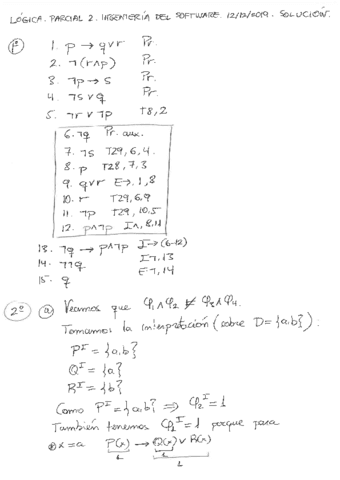 LÓGICA. PARCIAL 2. INGENIERÍA DEL SOFTWARE. 12/12/2019. SOLUCIÓN.
1º
1. p → q∨r Pr.
2. ¬(r∧p) Pr.
3. ¬p → s Pr.
4. ¬s ∨ q Pr.
5. ¬r ∨ ¬p T8, 2
6. ¬q Pr. aux.
7. ¬s T29, 6, 4.
8. p T28, 7, 3
9. q∨r E→, 1, 8
10. r T29, 6, 9
11. ¬p T29, 10, 5
12. p∧¬p I∧, 8, 11
13. ¬q → p∧¬p I→ (6-12)
14. ¬¬q I¬, 13
15. q E¬, 14
2º a) Veamos que φ₁∧φ₂ ⊭ φ₃∧φ₄.
Tomamos la interpretación (sobre D={a,b}):
Pᴵ = {a,b}
Qᴵ = {a}
Rᴵ = {b}
Como Pᴵ = {a,b} ⇒ φ₂ᴵ = 1
También tenemos φ₁ᴵ = 1 porque para
x = a P(x) → Q(x) ∨ R(x)
1 1
1